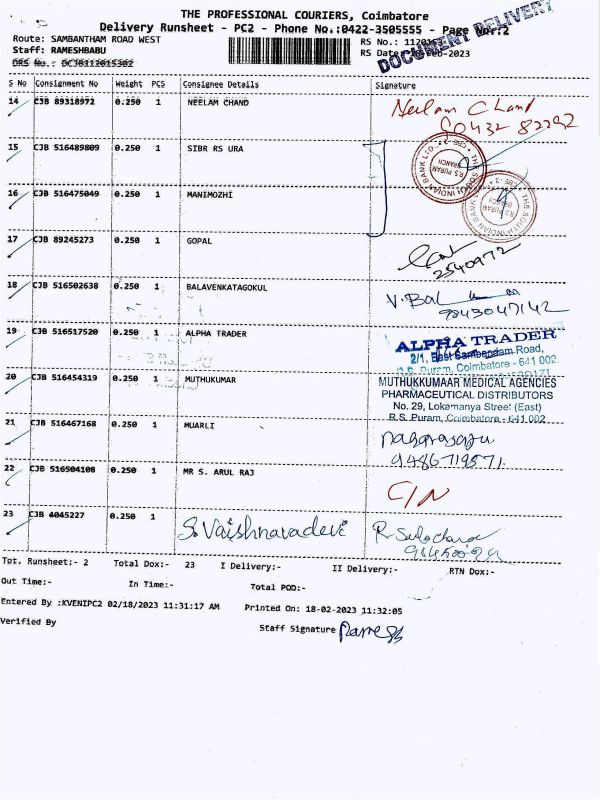 THE PROFESSIONAL COURIERS, Coimbatore
Delivery Runsheet - PC2 - Phone No.:0422-3505555 - Page Nor:2
DOCUMENT DELIVERY
Route: SAMBANTHAM ROAD WEST
RS No.: 1120
Staff: RAMESHBABU
RS Date: -Feb-2023
DRS No.: DCJ0112015302
S No Consignment No Weight PCS Consignee Details Signature
14 CJB 89318972 0.250 1 NEELAM CHAND Neelam Chand
90432 82292
15 CJB 516489809 0.250 1 SIBR RS URA
THE SOUTH INDIAN BANK LTD. CBE-2
R.S. PURAM BRANCH
16 CJB 516475049 0.250 1 MANIMOZHI
THE SOUTH INDIAN BANK
R.S. PURAM
17 CJB 89245273 0.250 1 GOPAL
2540972
18 CJB 516502638 0.250 1 BALAVENKATAGOKUL V. Bal
9843047142
19 CJB 516517520 0.250 1 ALPHA TRADER ALPHA TRADER
2/1, East Sambandam Road,
R.S. Puram, Coimbatore - 641 002.
20 CJB 516454319 0.250 1 MUTHUKUMAR MUTHUKKUMAAR MEDICAL AGENCIES
PHARMACEUTICAL DISTRIBUTORS
No. 29, Lokamanya Street (East)
R.S. Puram, Coimbatore - 641 002
21 CJB 516467168 0.250 1 MUARLI
9486719571
22 CJB 516504108 0.250 1 MR S. ARUL RAJ C/N
23 CJB 4045227 0.250 1 S. Vaishnavadevi R. Sulochana
Tot. Runsheet:- 2 Total Dox:- 23 I Delivery:- II Delivery:- RTN Dox:-
Out Time:- In Time:- Total POD:-
Entered By :KVENIPC2 02/18/2023 11:31:17 AM Printed On: 18-02-2023 11:32:05
Verified By Staff Signature